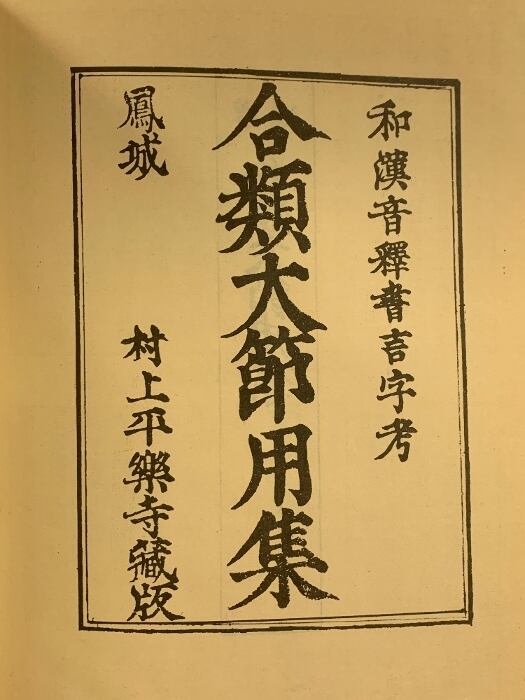 和漢音釋書言字考
合類大節用集
鳳城 村上平樂寺藏版